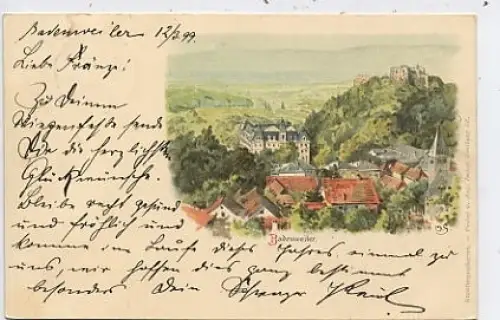 Badenweiler 12/3.99.
Liebe Fränze!
Zu Deinem
Wiegenfeste sende
Dir die herzlichsten
Glückwünsche.
Bleibe recht gesund
und fröhlich und
komme im Laufe dieses Jahres einmal zu
uns, wir hoffen dies ganz bestimmt
besonders Dein
Badenweiler.